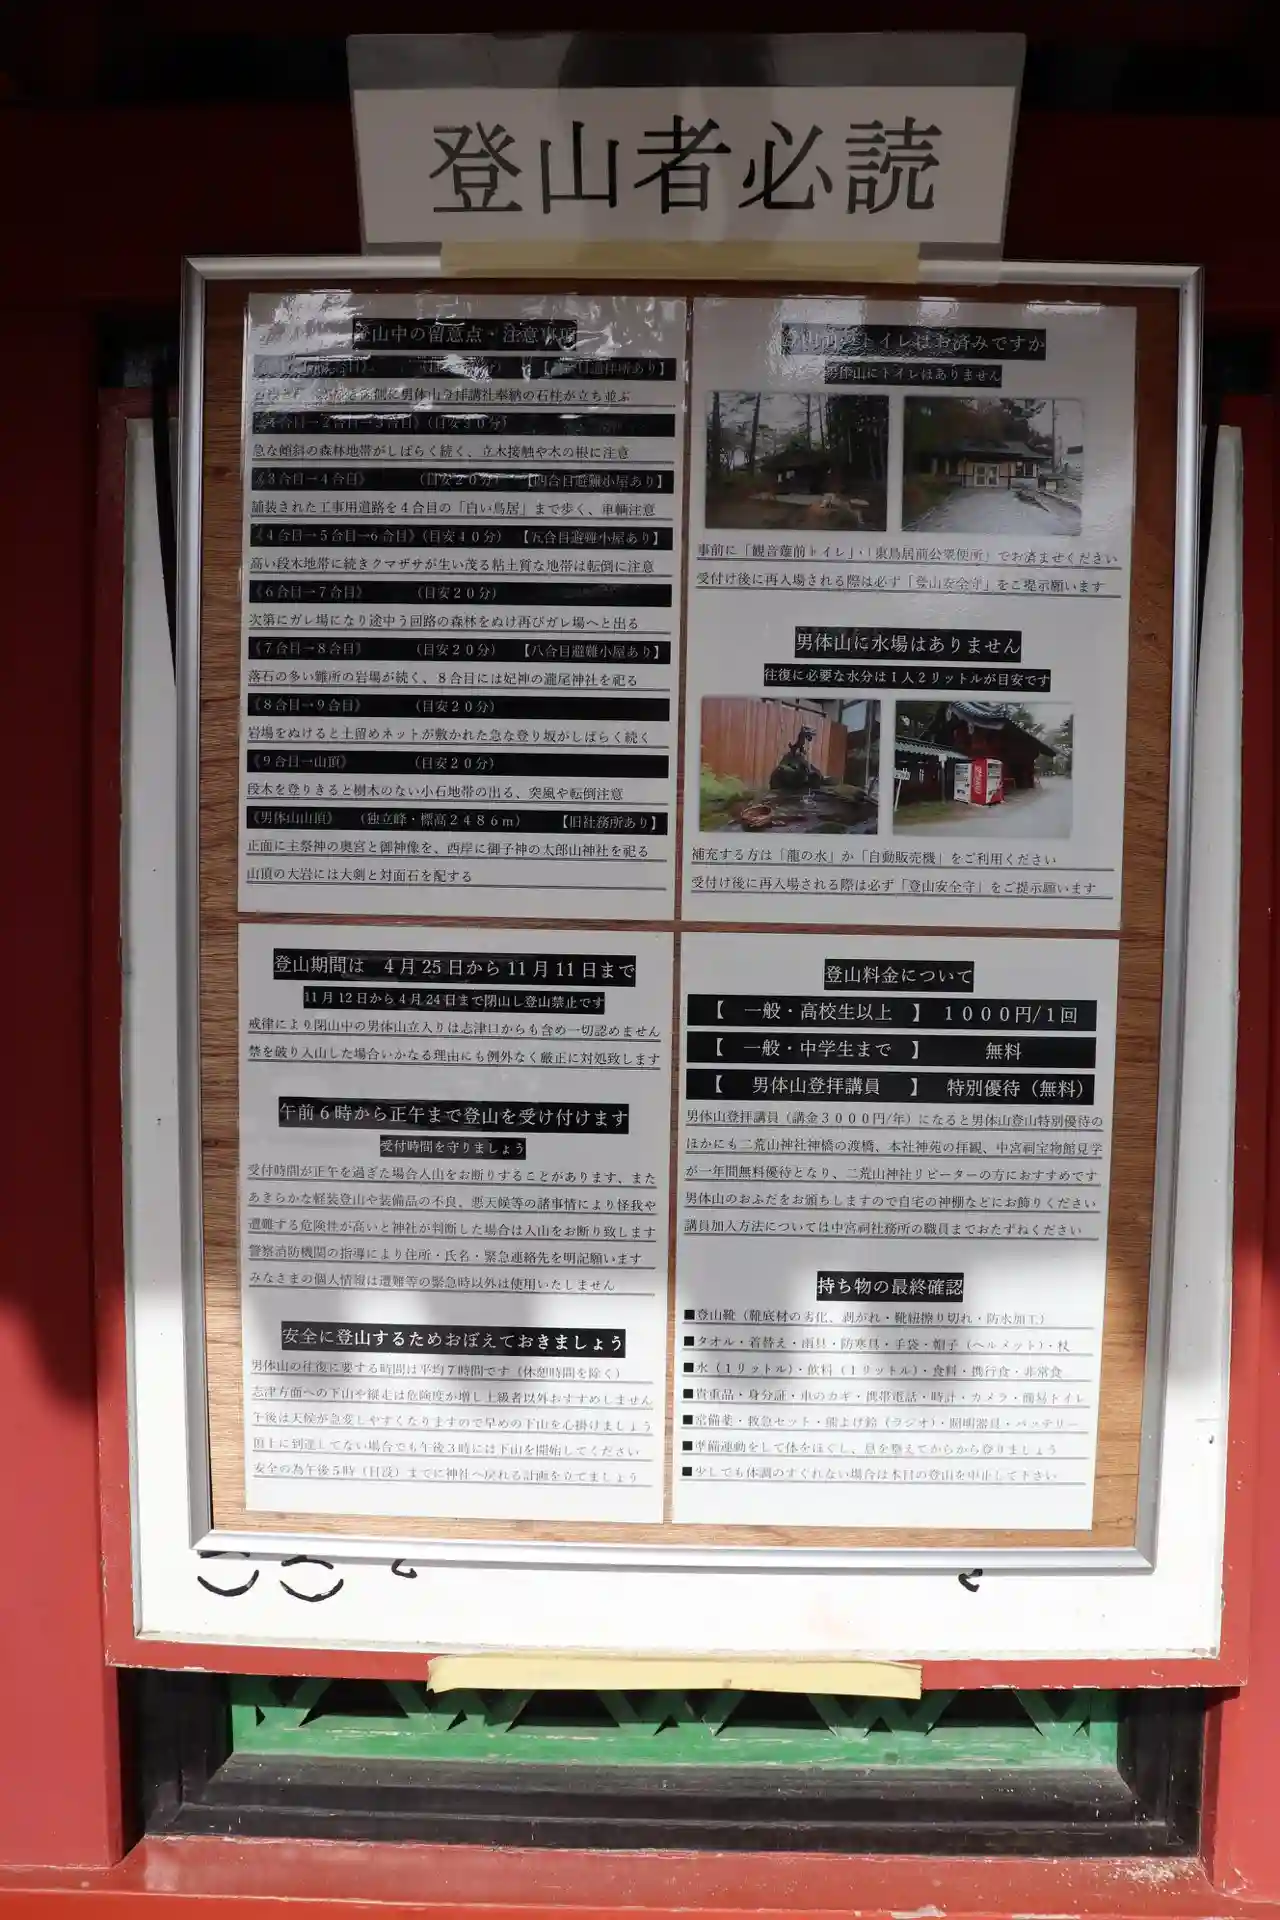 登山者必読
登山中の留意点・注意事項
側に男体山登拝講社奉納の石柱が立ち並ぶ
合目→2合目→3合目》(目安30分)
急な傾斜の森林地帯がしばらく続く、立木接触や木の根に注意
《3合目→4合目》 (目安20分) 【四合目避難小屋あり】
舗装された工事用道路を4合目の「白い鳥居」まで歩く、車輌注意
《4合目→5合目→6合目》(目安40分) 【五合目避難小屋あり】
高い段木地帯に続きクマザサが生い茂る粘土質な地帯は転倒に注意
《6合目→7合目》 (目安20分)
次第にガレ場になり途中う回路の森林をぬけ再びガレ場へと出る
《7合目→8合目》 (目安20分) 【八合目避難小屋あり】
落石の多い難所の岩場が続く、8合目には妃神の瀧尾神社を祀る
《8合目→9合目》 (目安20分)
岩場をぬけると土留めネットが敷かれた急な登り坂がしばらく続く
《9合目→山頂》 (目安20分)
段木を登りきると樹木のない小石地帯の出る、突風や転倒注意
《男体山山頂》 (独立峰・標高2486m) 【旧社務所あり】
正面に主祭神の奥宮と御神像を、西岸に御子神の太郎山神社を祀る
山頂の大岩には大剣と対面石を配する
登山前にトイレはお済みですか
男体山にトイレはありません
事前に「観音薙前トイレ」・「東鳥居前公衆便所」でお済ませください
受付け後に再入場される際は必ず「登山安全守」をご提示願います
男体山に水場はありません
往復に必要な水分は1人2リットルが目安です
補充する方は「龍の水」か「自動販売機」をご利用ください
受付け後に再入場される際は必ず「登山安全守」をご提示願います
登山期間は 4月25日から11月11日まで
11月12日から4月24日まで閉山し登山禁止です
戒律により閉山中の男体山立入りは志津口からも含め一切認めません
禁を破り入山した場合いかなる理由にも例外なく厳正に対処致します
午前6時から正午まで登山を受け付けます
受付時間を守りましょう
受付時間が正午を過ぎた場合入山をお断りすることがあります、また
あきらかな軽装登山や装備品の不良、悪天候等の諸事情により怪我や
遭難する危険性が高いと神社が判断した場合は入山をお断り致します
警察消防機関の指導により住所・氏名・緊急連絡先を明記願います
みなさまの個人情報は遭難等の緊急時以外は使用いたしません
安全に登山するためおぼえておきましょう
男体山の往復に要する時間は平均7時間です(休憩時間を除く)
志津方面への下山や縦走は危険度が増し上級者以外おすすめしません
午後は天候が急変しやすくなりますので早めの下山を心掛けましょう
頂上に到達してない場合でも午後3時には下山を開始してください
安全の為午後5時(日没)までに神社へ戻れる計画を立てましょう
登山料金について
【 一般・高校生以上 】 1000円/1回
【 一般・中学生まで 】 無料
【 男体山登拝講員 】 特別優待(無料)
男体山登拝講員(講金3000円/年)になると男体山登山特別優待の
ほかにも二荒山神社神橋の渡橋、本社神苑の拝観、中宮祠宝物館見学
が一年間無料優待となり、二荒山神社リピーターの方におすすめです
男体山のおふだをお頒ちしますので自宅の神棚などにお飾りください
講員加入方法については中宮祠社務所の職員までおたずねください
持ち物の最終確認
■登山靴(靴底材の劣化、剥がれ・靴紐擦り切れ・防水加工)
■タオル・着替え・雨具・防寒具・手袋・帽子(ヘルメット)・杖
■水(1リットル)・飲料(1リットル)・食料・携行食・非常食
■貴重品・身分証・車のカギ・携帯電話・時計・カメラ・簡易トイレ
■常備薬・救急セット・熊よけ鈴(ラジオ)・照明器具・バッテリー
■準備運動をして体をほぐし、息を整えてからから登りましょう
■少しでも体調のすぐれない場合は本日の登山を中止して下さい